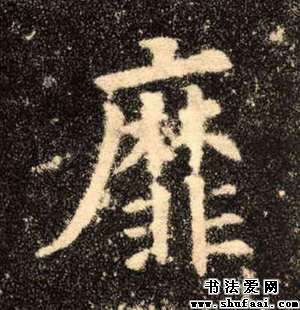 靡
书法爱网
www.shufaai.com